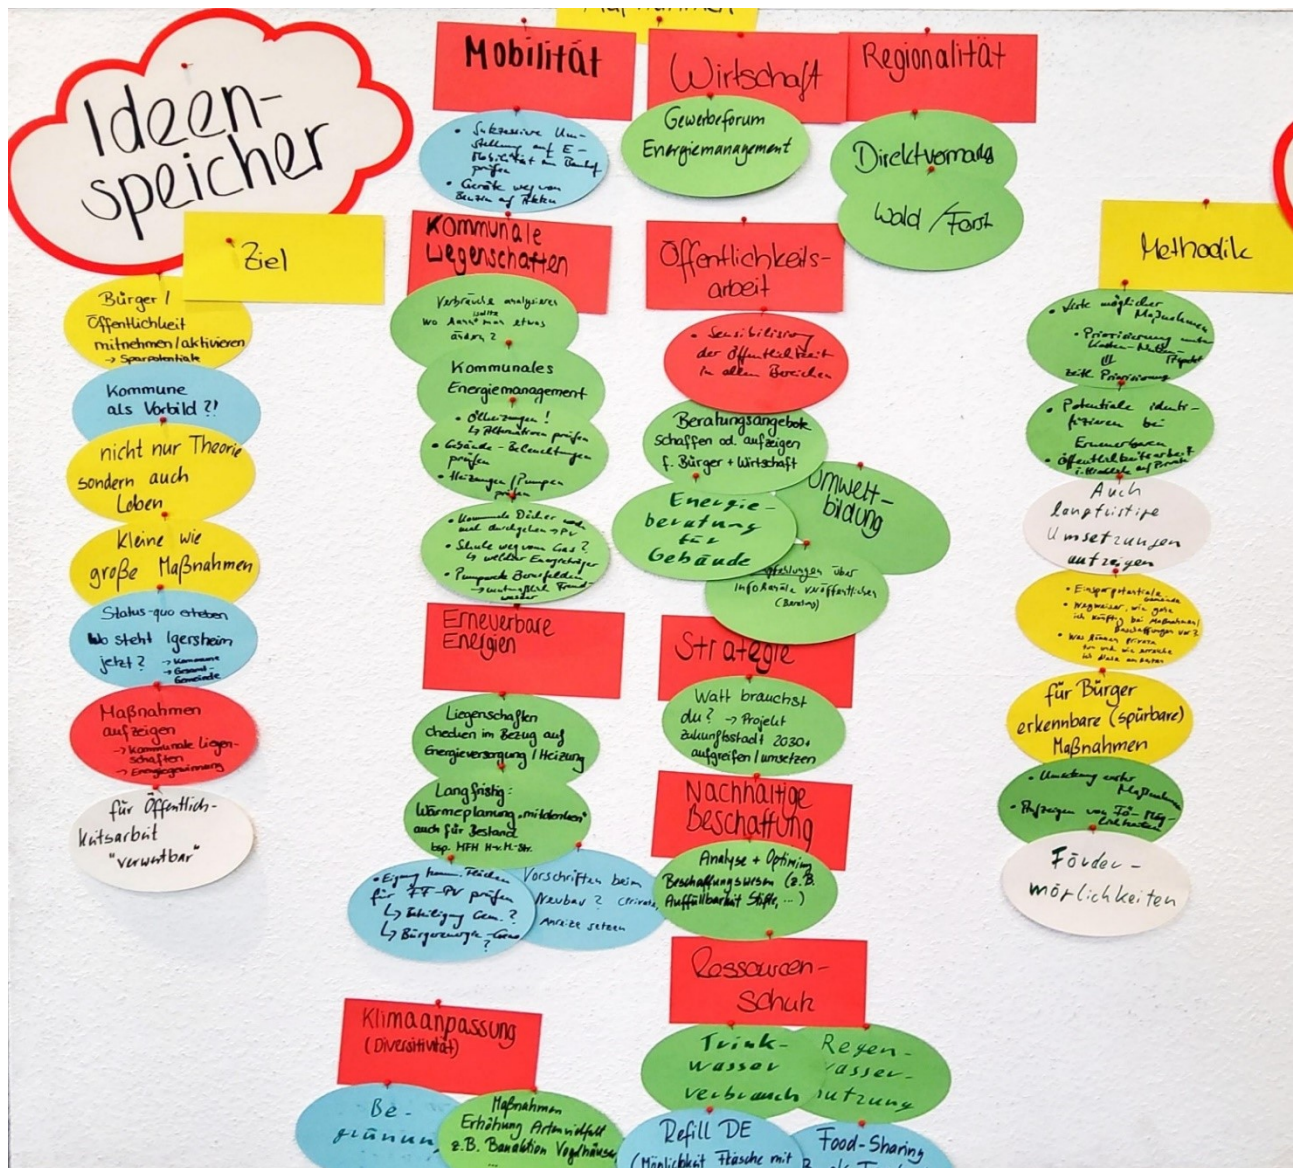 Ideen-
speicher
Ziel
Bürger /
Öffentlichkeit
mitnehmen/aktivieren
→ Sparpotentiale
Kommune
als Vorbild ?!
nicht nur Theorie
sondern auch
Leben
Kleine wie
große Maßnahmen
Status-quo erheben
Wo steht Igersheim
jetzt? → Kommune
→ Gesamt-
Gemeinde
Maßnahmen
aufzeigen
→ Kommunale Liegen-
schaften
→ Energiegewinnung
für Öffentlich-
keitsarbeit
"verwertbar"
Mobilität
• Sukzessive Um-
stellung auf E-
Mobilität am Bauhof
prüfen
• Geräte weg von
Benzin auf
Kommunale
Liegenschaften
Verbräuche analysieren
wo kann man etwas
ändern?
Kommunales
Energiemanagement
• Ölheizungen!
↳ Alternativen prüfen
• Gebäude-Beleuchtungen
prüfen
• Heizungen/Pumpen
prüfen
• Kommunale Dächer noch
mal durchgehen → PV
• Schule weg vom Gas?
↳ welcher Energieträger
• Pumpwerk
Erneuerbare
Energien
Liegenschaften
checken im Bezug auf
Energieversorgung / Heizung
Langfristig:
Wärmeplanung „mitdenken"
auch für Bestand
bsp. MFH H.-v.-H.-Str.
• Eignung komm. Flächen
für FF-PV prüfen
↳ Beteiligung Gem.?
↳ Bürgerenergie-
?
Vorschriften beim
Neubau? (Private,
Anreize setzen
Klimaanpassung
(Diversitivität)
Be-
grünun
Maßnahmen
Erhöhung Artenvielfalt
z.B. Bauaktion Vogelhäuse
...
Wirtschaft
Gewerbeforum
Energiemanagement
Regionalität
Direktvermarg
Wald / Forst
Öffentlichkeits-
arbeit
• Sensibilisierung
der Öffentlichkeit
in allen Bereichen
Beratungsangebote
schaffen od. aufzeigen
f. Bürger + Wirtschaft
Energie-
beratung
für
Gebäude
Umwelt-
bildung
über
Infokanäle veröffentlichen
(Beratung)
Strategie
Watt brauchst
du? → Projekt
Zukunftsstadt 2030+
aufgreifen / umsetzen
Nachhaltige
Beschaffung
Analyse + Optimierg
Beschaffungswesen (z.B.
Auffüllbarkeit Stifte, ...)
Ressourcen-
schutz
Trink-
wasser
verbrauch
Regen-
wasser-
nutzung
Refill DE
(Möglichkeit Flasche mit
Food-Sharing
Methodik
• Liste möglicher
Maßnahmen
• Priorisierung unter
Kosten-Nutzen-
Aspekt
zeitl. Priorisierung
• Potentiale identi-
fizieren bei
Erneuerbaren
• Öffentlichkeitsarbeit
Auch
langfristige
Umsetzungen
aufzeigen
• Einsparpotentiale
Gemeinde
• Wegweiser, wie gehe
ich künftig bei Maßnahmen/
Beschaffungen vor?
• Was können Private
tun und wie erreiche
ich diese am besten
für Bürger
erkennbare (spürbare)
Maßnahmen
• Umsetzung erster
Maßnahmen
• Aufzeigen von Fö-Mög-
lichkeiten
Förder-
möglichkeiten